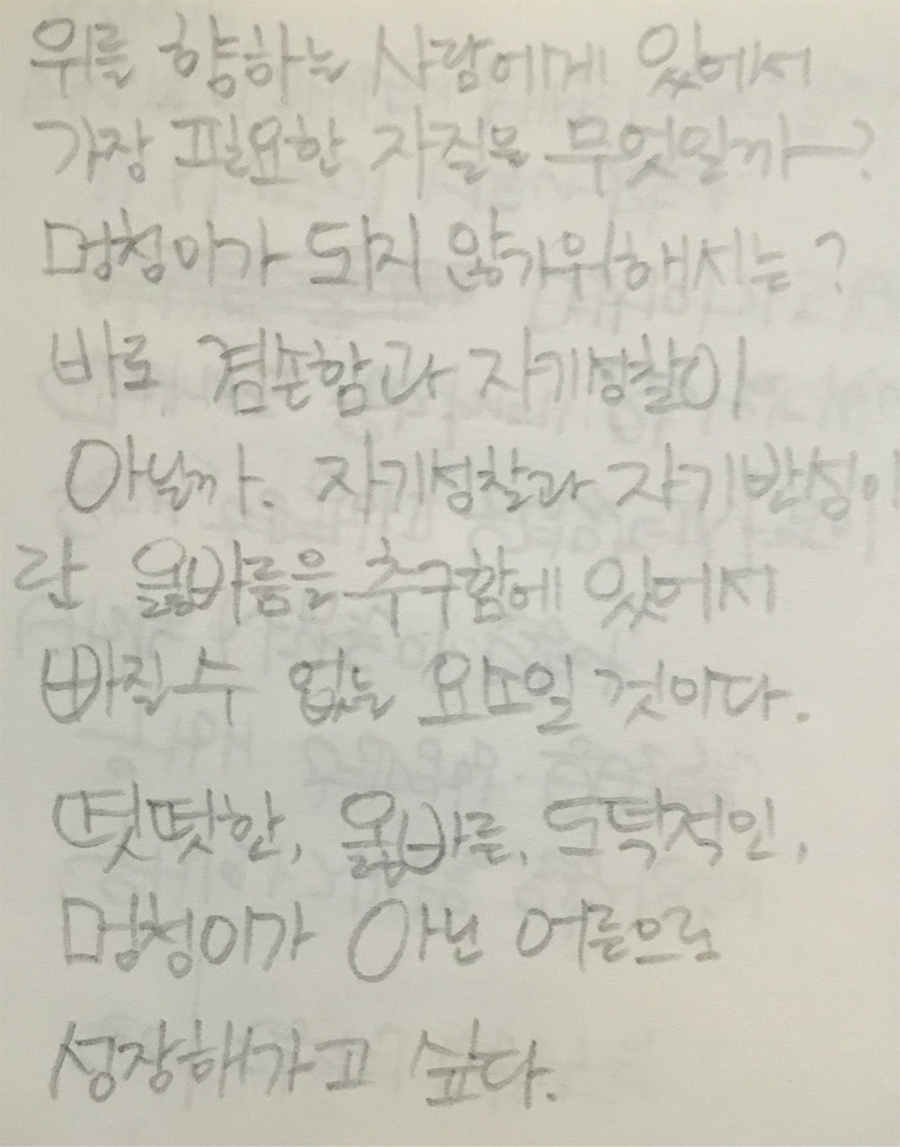 위를 향하는 사람에게 있어서
가장 필요한 자질은 무엇일까?
멍청이가 되지 않기위해서는?
바로 겸손함과 자기성찰이
아닐까. 자기성찰과 자기반성이
란 옳바름을 추구함에 있어서
빠질 수 없는 요소일 것이다.
떳떳한, 옳바른, 도덕적인,
멍청이가 아닌 어른으로
성장해가고 싶다.